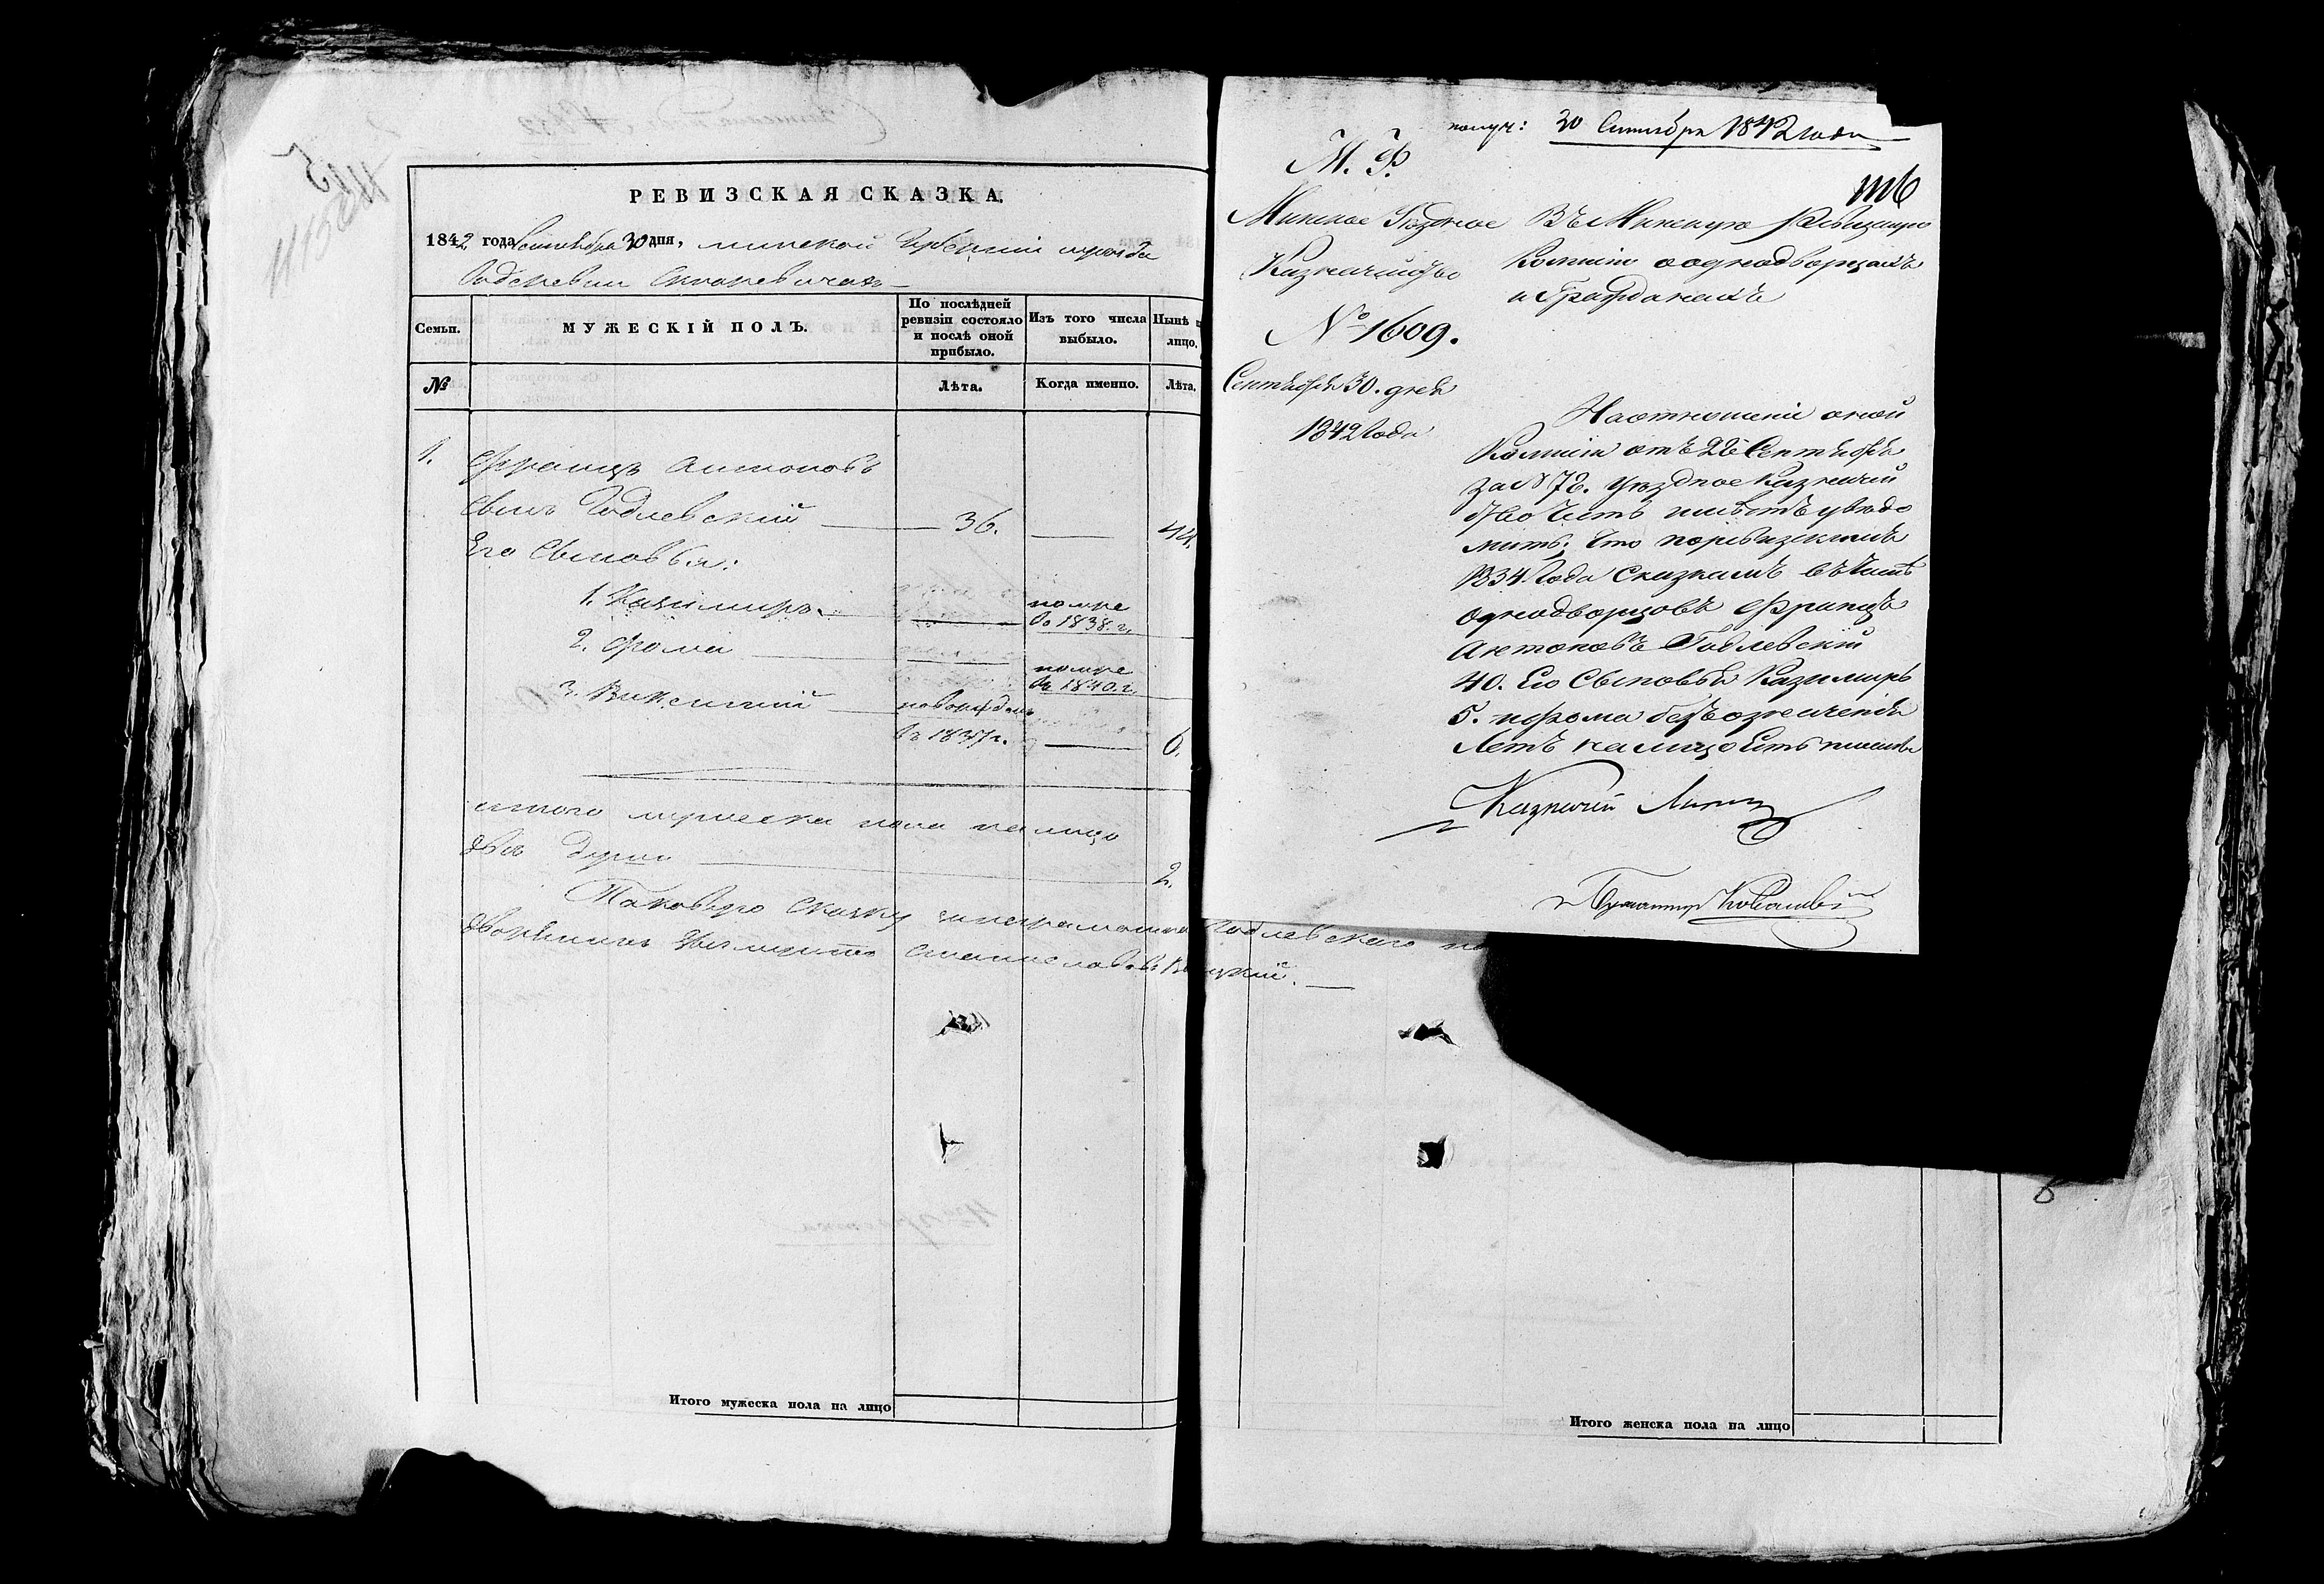 РЕВИЗСКАЯ СКАЗКА.
1842 года Сентября 30 дня, Минской Губерніи
Семьи.
МУЖЕСКІЙ ПОЛЪ.
По послѣдней ревизіи состояло и послѣ оной прибыло.
Изъ того числа выбыло.
Нынѣ
лицо.
№
Лѣта.
Когда именно.
Лѣта.
1.
Францъ Антоновъ
Сынъ Годлевскій 36. 44.
Его Сыновья:
1. Казимиръ помре въ 1838. г.
2. Фома помре въ 1840. г.
3. Викентій новорожденъ въ 1837 г. 6.
итого мужеска пола на лицо
двѣ души 2.
Таковую сказку Годлевскаго
дворянинъ
Итого мужеска пола на лицо
получ: 30 Сентября 1842 года
М. Ф.
Минское Уѣздное
Казначейство
№ 1609.
Сентября 30. дня
1842 Года
Въ Минскую Ревизную
Комисію о однодворцахъ
и Гражданахъ
На отношеніи оной
Комисіи отъ 22 Сентября
за № 72. Уѣздное Казначей
ство Честь имѣетъ увѣдо
мить, Что по ревизскимъ
1834 Года Сказкамъ въ числѣ
однодворцовъ Францъ
Антоновъ Годлевскій
40. Его Сыновья Казимиръ
5. и Фома безъ означенія
Летъ на лицо Есть
Казначей
Бухгалтер
Итого женска пола на лицо